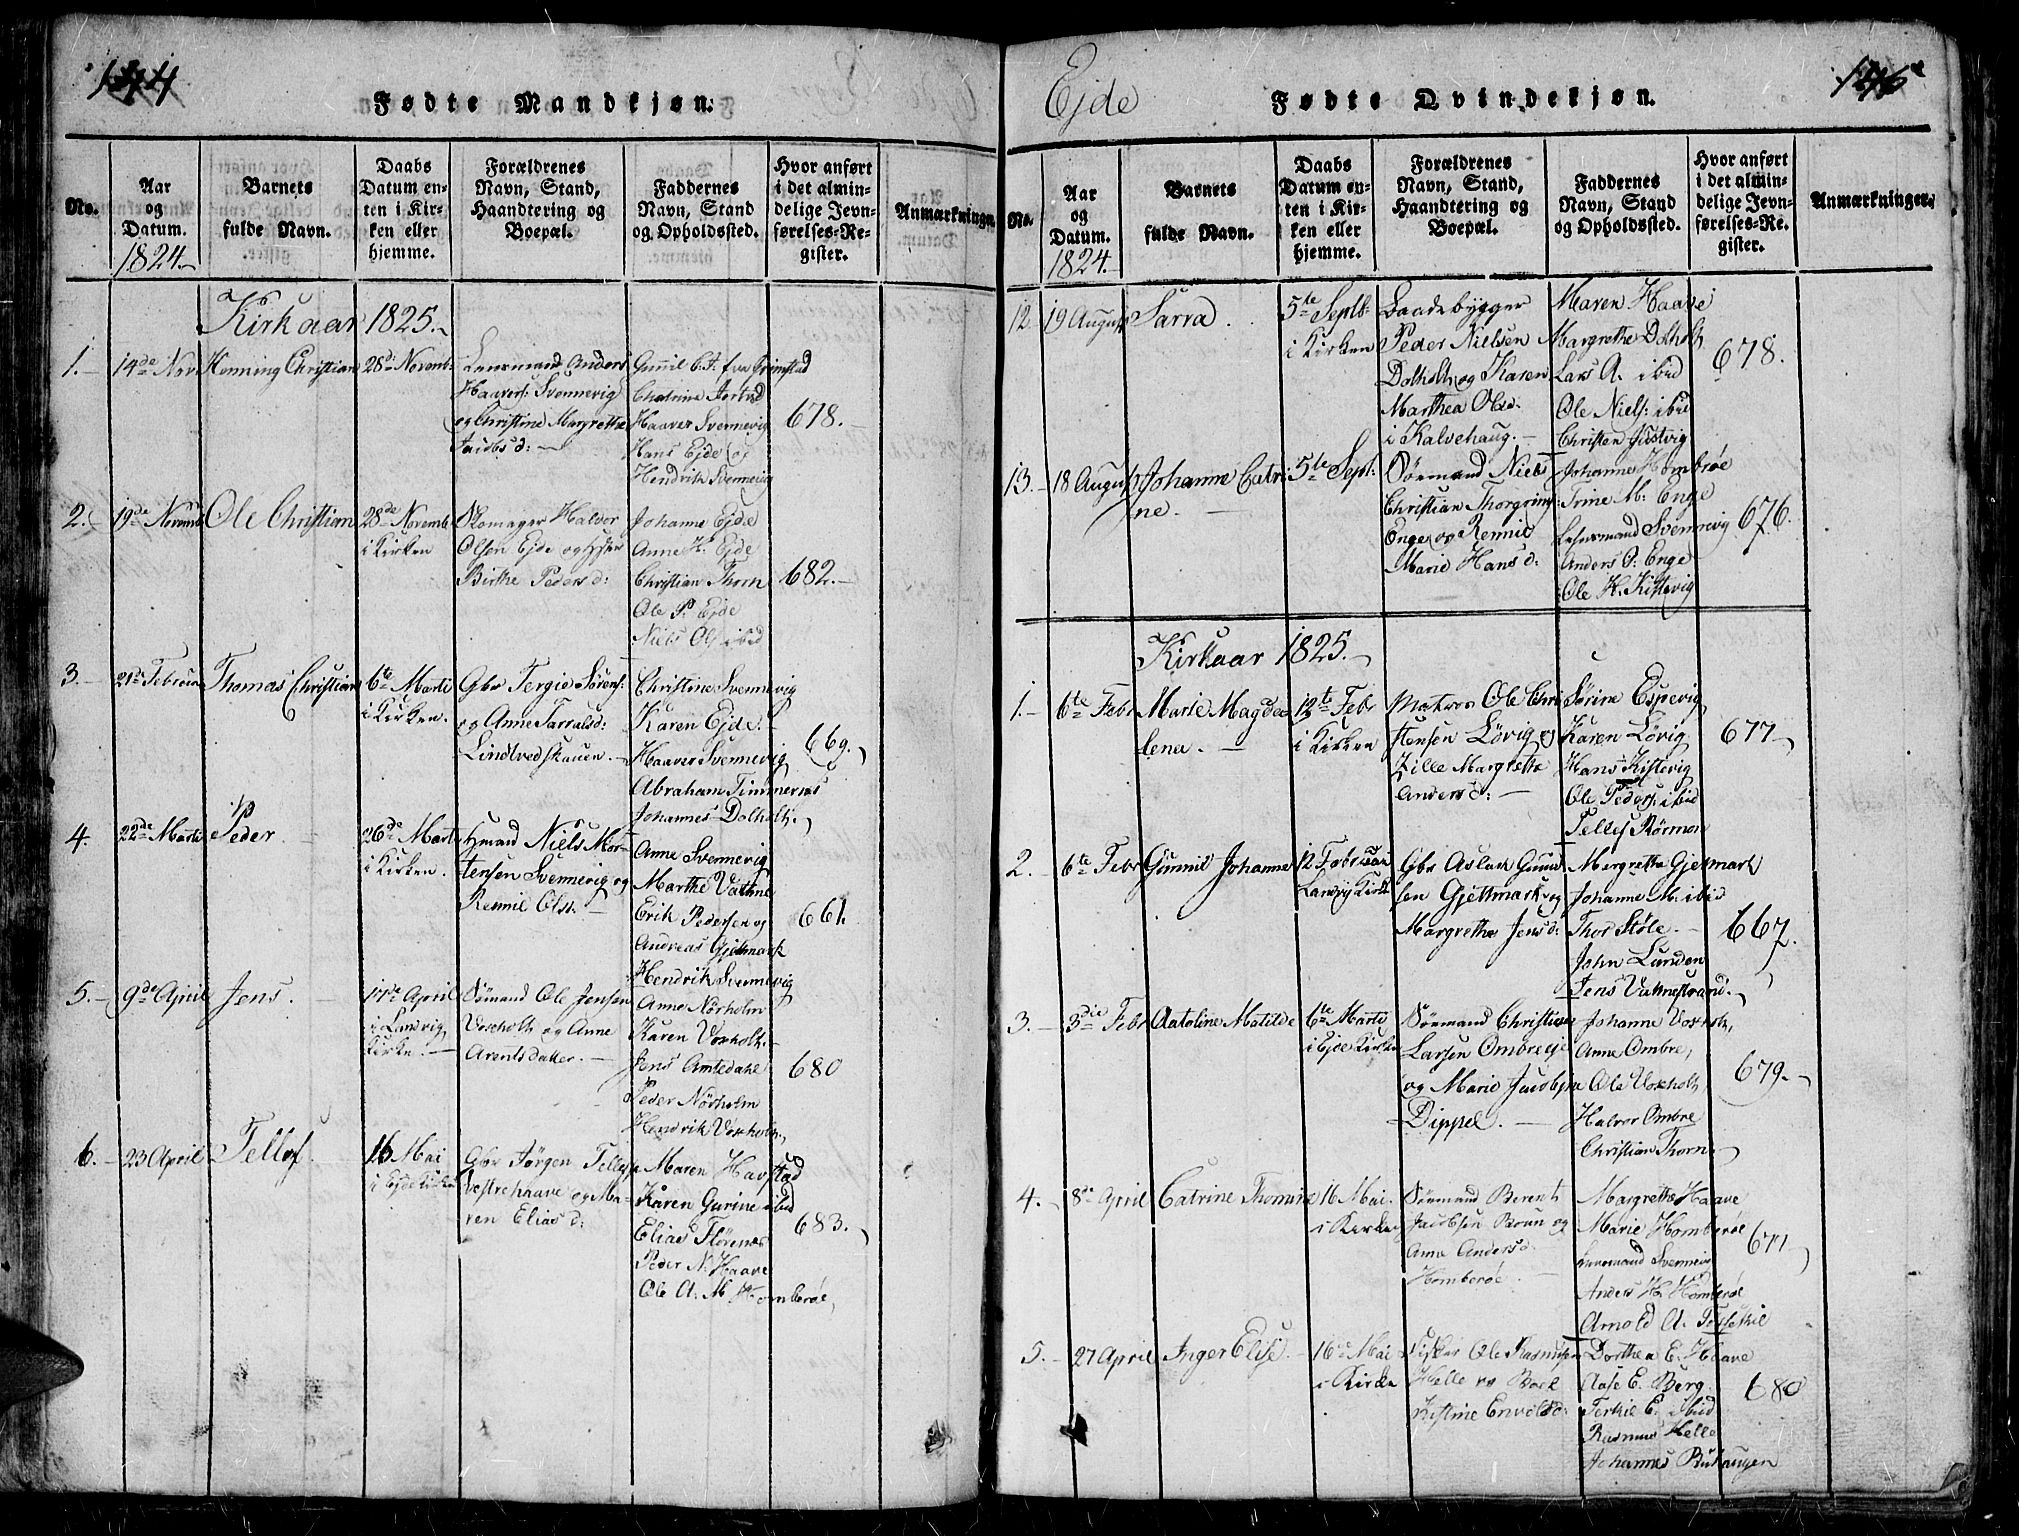 144
Fødte Mandkjøn.
No.
Aar og Datum.
1824.
Barnets fulde Navn.
Daabs Datum enten i Kirken eller hjemme.
Forældrenes Navn, Stand, Haandtering og Boepæl.
Faddernes Navn, Stand og Opholdssted.
Hvor anført i det almindelige Jevnførelses-Register.
Anmærkninger
Kirkaar 1825.
1.
14de Nov
Henning Christian
28de Novemb:
Lensmand Anders
Haavers: Svennevig
og Christine Margrethe
Jacobsd:
Gunnil C.T. fra Grimstad
Chatrine
Haaver Svennevig
Hans Ejde og
Hendrik Svennevig
678.
2.
19de Novemb
Ole Christian
28de Novemb
i Kirken
Skomager Halvor
Olsen Ejde og
Birthe Pedersd:
Johanne Ejde
Anne H. Ejde
Christian Thorn
Ole P. Ejde
Niels Ols ibid
682.
3.
21de Februar
Thomas Christian
6te Marti
i Kirken.
Gbr Tergie Sørens:
og Anne Tarralsd:
Lindtvedskauen.
Christine Svennevig
Karen Ejde.
Haaver Svennevig
Abraham Timmernæs
Johannes Dolholt.
669.
4.
22de Marti
Peder
26de Marti
i Kirken.
Hmand Niels Mor-
tensen Svennevig og
Rennie Olsd.
Anne Svennevig
Marthe Vathne
Erik Pedersen og
Andreas Gjetmark
Hendrik Svennevig
661.
5.
9de April
Jens.
17de April
i Landvig
Kirke.
Sømand Ole Jensen
Voxholt og Anne
Arentsdatter.
Anne Nørholm
Karen Voxholt.
Jens Amtedahl
Peder Nørholm
Hendrik Voxholm
680
6.
23 April
Tellef.
16 Mai
i Ejde Kirke
Gbr Jørgen Tellefs
Vestrehaave og Ma-
ren Eliasd:
Maren Havstad
Karen Gurine ibid
Elias Florenæs
Peder N. Haave
Ole A. M. Homberøe,
683.
Ejde
Fødte Qvindekjøn.
146
No.
Aar og Datum.
1824.
Barnets fulde Navn.
Daabs Datum enten i Kirken eller hjemme.
Forældrenes Navn, Stand, Haandtering og Boepæl.
Faddernes Navn, Stand og Opholdssted.
Hvor anført i det almindelige Jevnførelses-Register.
Anmærkninger.
12.
19 August
Sarra.
5te Septb:
i Kirken
Baadebygger
Peder Nielsen
Dolholt og Karen
Marthea Olsd.
i Kalvehaug.
Maren Haave
Margrethe Dolholt
Lars A. ibid
Ole Niels: ibid
Christen Justvig
678.
13.
18 August
Johanne Catri-
ne.
5te Sept:
Sørmand Niels
Christian Thorgrims:
Enge og Rennie
Marie Hansd:
Johanne Hombrøe
Trine M. Enge
Lensmand Svennevig
Anders P. Enge
Ole H. Kistevig
676.
Kirkaar 1825.
1.
6te Febr
Marie Magda-
lena.
12te Febr
i Kirken
Matros Ole Chri-
stensen Løvig og
Zille Margrethe
Andersd:
Sørine Espevig
Karen Løvig
Hans Kistevig
Ole Peders: ibid
Tellef Rørmon
677
2.
6te Febr
Gunnil Johanne
12 Febr
Landvig Kirke
Gbr Aslak Gunu-
sen Gjethmark og
Margrethe Jensd:
Margrethe Gjetmark
Johanne M. ibid
Thor Støle.
John Lunden
Jens Vathnestrand.
667.
3.
3die Febr
Aatoline Matilde
6te Marti
i Ejde Kirke
Sørmand Christian
Larsen Ombre
og Marie Jacobine
Dippel.
Johanne Voxholt,
Anne Ombre,
Ole Voxholt,
Halvor Ombre
Christian Thorn
679.
4.
8de April
Catrine Thomine
16 Mai.
i Kirke
Sørmand Berent
Jacobsen Brun og
Anne Andersd:
Homberøe.
Margrethe Haave
Marie Homberøe
Lensmand Svennevig
Anders H. Homberøe
Arnold A. Fosseskil
671
5.
27 April
Inger Elise.
16de Mai
i Kirke
Fisker Ole Rasmusen
Helle og Boel
Kistine Envoldsd:
Dorthea E. Haave
Aase E. Berg.
Terkil E. ibid
Rasmus Helle
Johannes Buhaugen
680